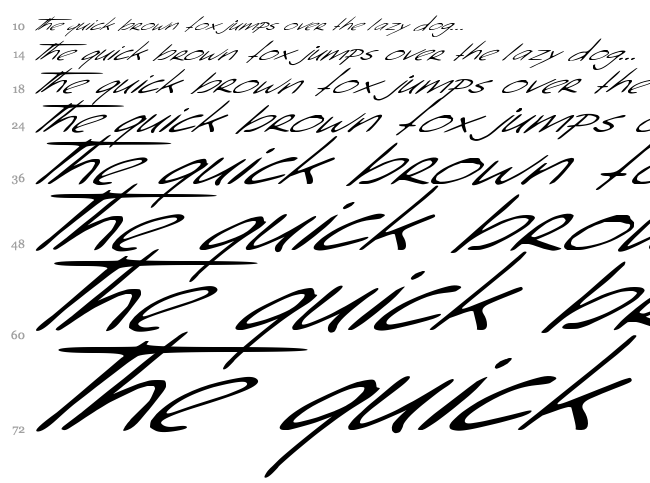 10 The quick brown fox jumps over the lazy dog...
14 The quick brown fox jumps over the lazy dog...
18 The quick brown fox jumps over the
24 The quick brown fox jumps o
36 The quick brown fo
48 The quick brow
60 The quick br
72 The quick